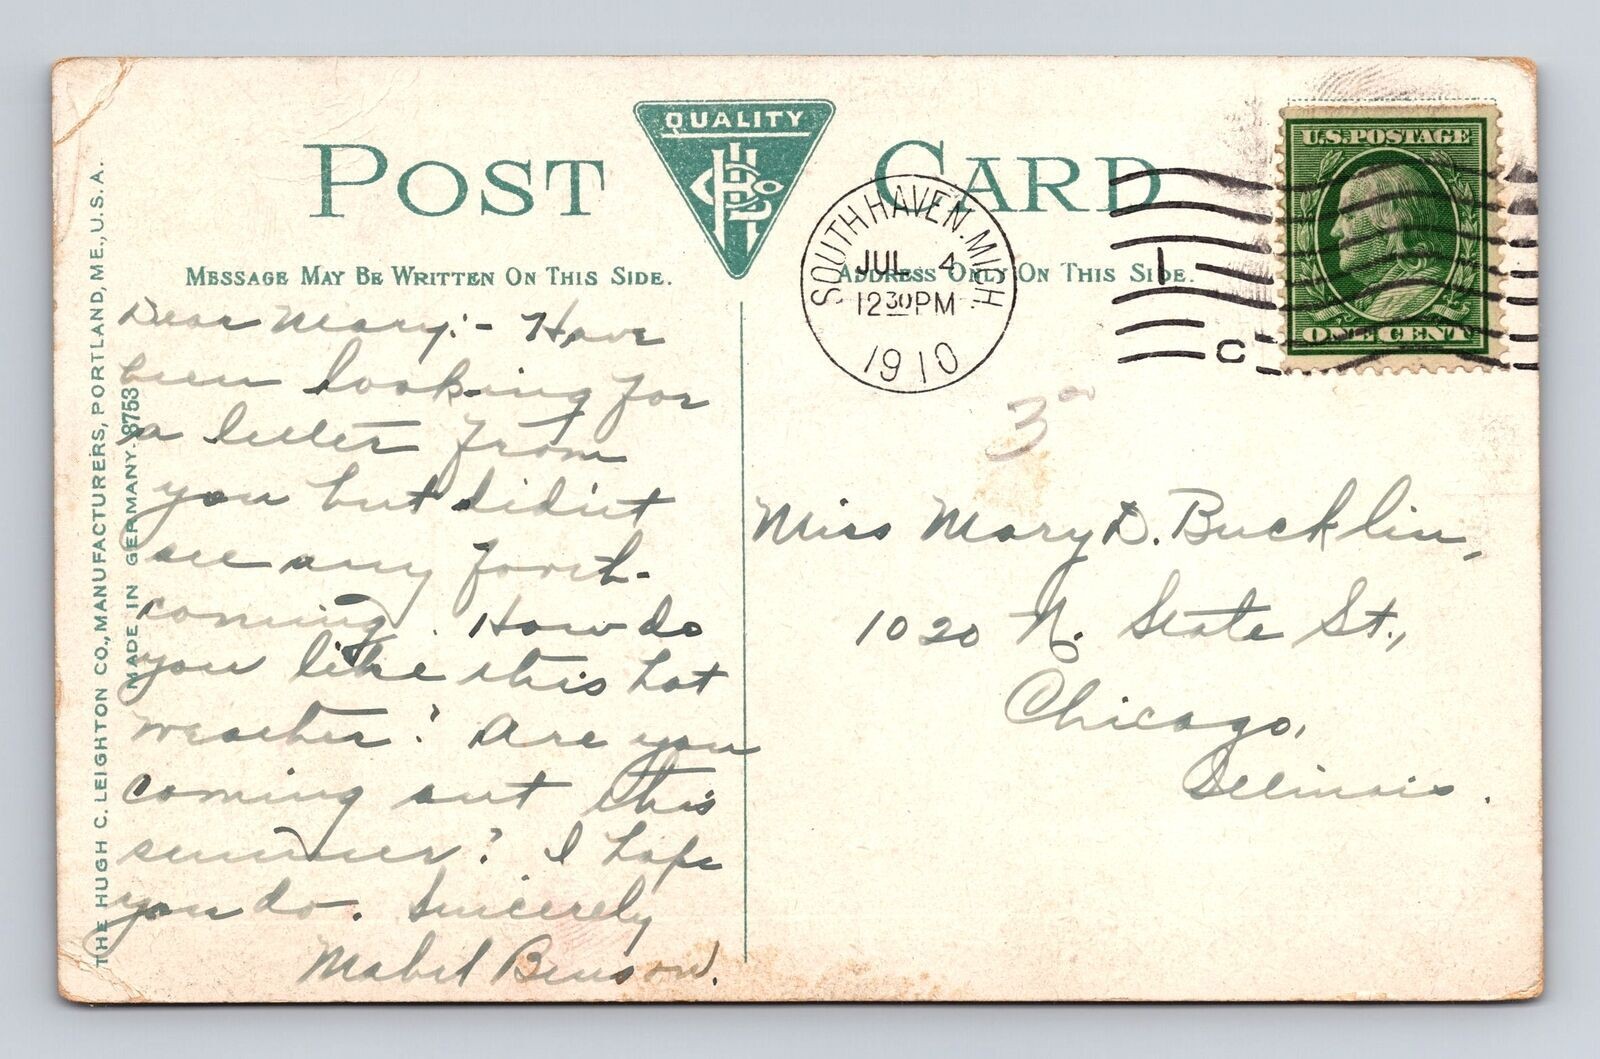 QUALITY
POST CARD
MESSAGE MAY BE WRITTEN ON THIS SIDE.
ADDRESS ONLY ON THIS SIDE.
THE HUGH C. LEIGHTON CO., MANUFACTURERS, PORTLAND, ME., U.S.A.
MADE IN GERMANY. 8753
SOUTH HAVEN. MICH.
JUL 4
1230PM
1910
1
C
U.S. POSTAGE
ONE CENT
3°°
Dear Mary:- Have
been looking for
a letter from
you but didn't
see any forth-
coming. How do
you like this hot
weather? Are you
coming out this
summer? I hope
you do. Sincerely
Mabel Benson.
Miss Mary D. Bucklin,
1020 N. State St.,
Chicago,
Illinois.